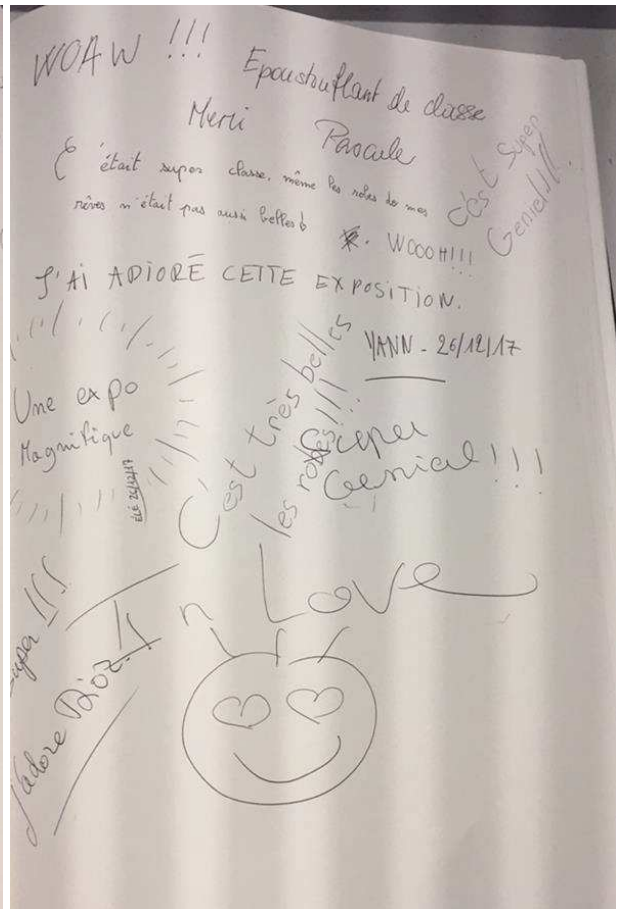 WOAW !!!
Epoustouflant de classe
Merci Pascale
C'était super classe, même les robes de mes
rêves n'était pas aussi belles
C'est Super
Genial!!!
WOOOH!!!
J'AI ADIORÉ CETTE EXPOSITION.
YANN - 26/12/17
Une expo
Magnifique
ÉLÉ 26/12/17
C'est très belles
les robes!!!
Super
Genial!!!
Love
Super !!!
J'adore